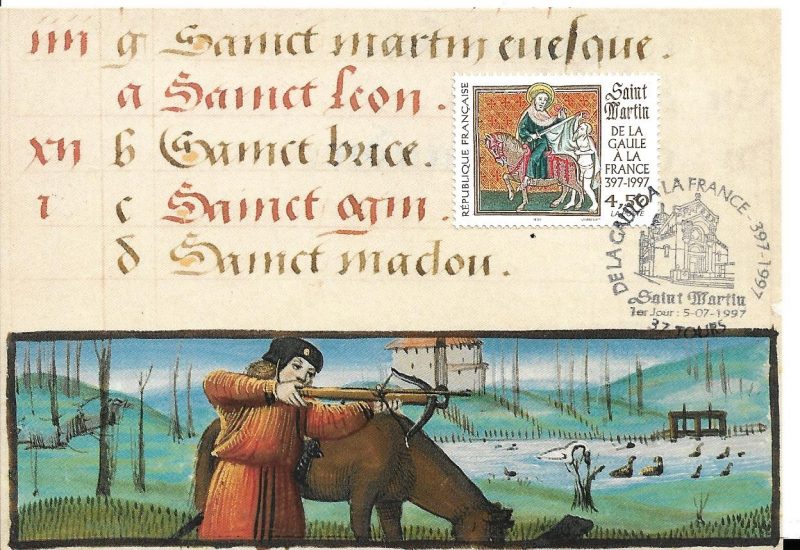 iiii g Sainct martin evesque.
a Sainct leon.
xii b Sainct brice.
i c Sainct ogin.
d Sainct maclou.
RÉPUBLIQUE FRANÇAISE
Saint
Martin
DE LA
GAULE
À LA
FRANCE
397-1997
DE LA GAULE A LA FRANCE - 397-1997
Saint Martin
1er Jour : 5-07-1997
37 TOURS